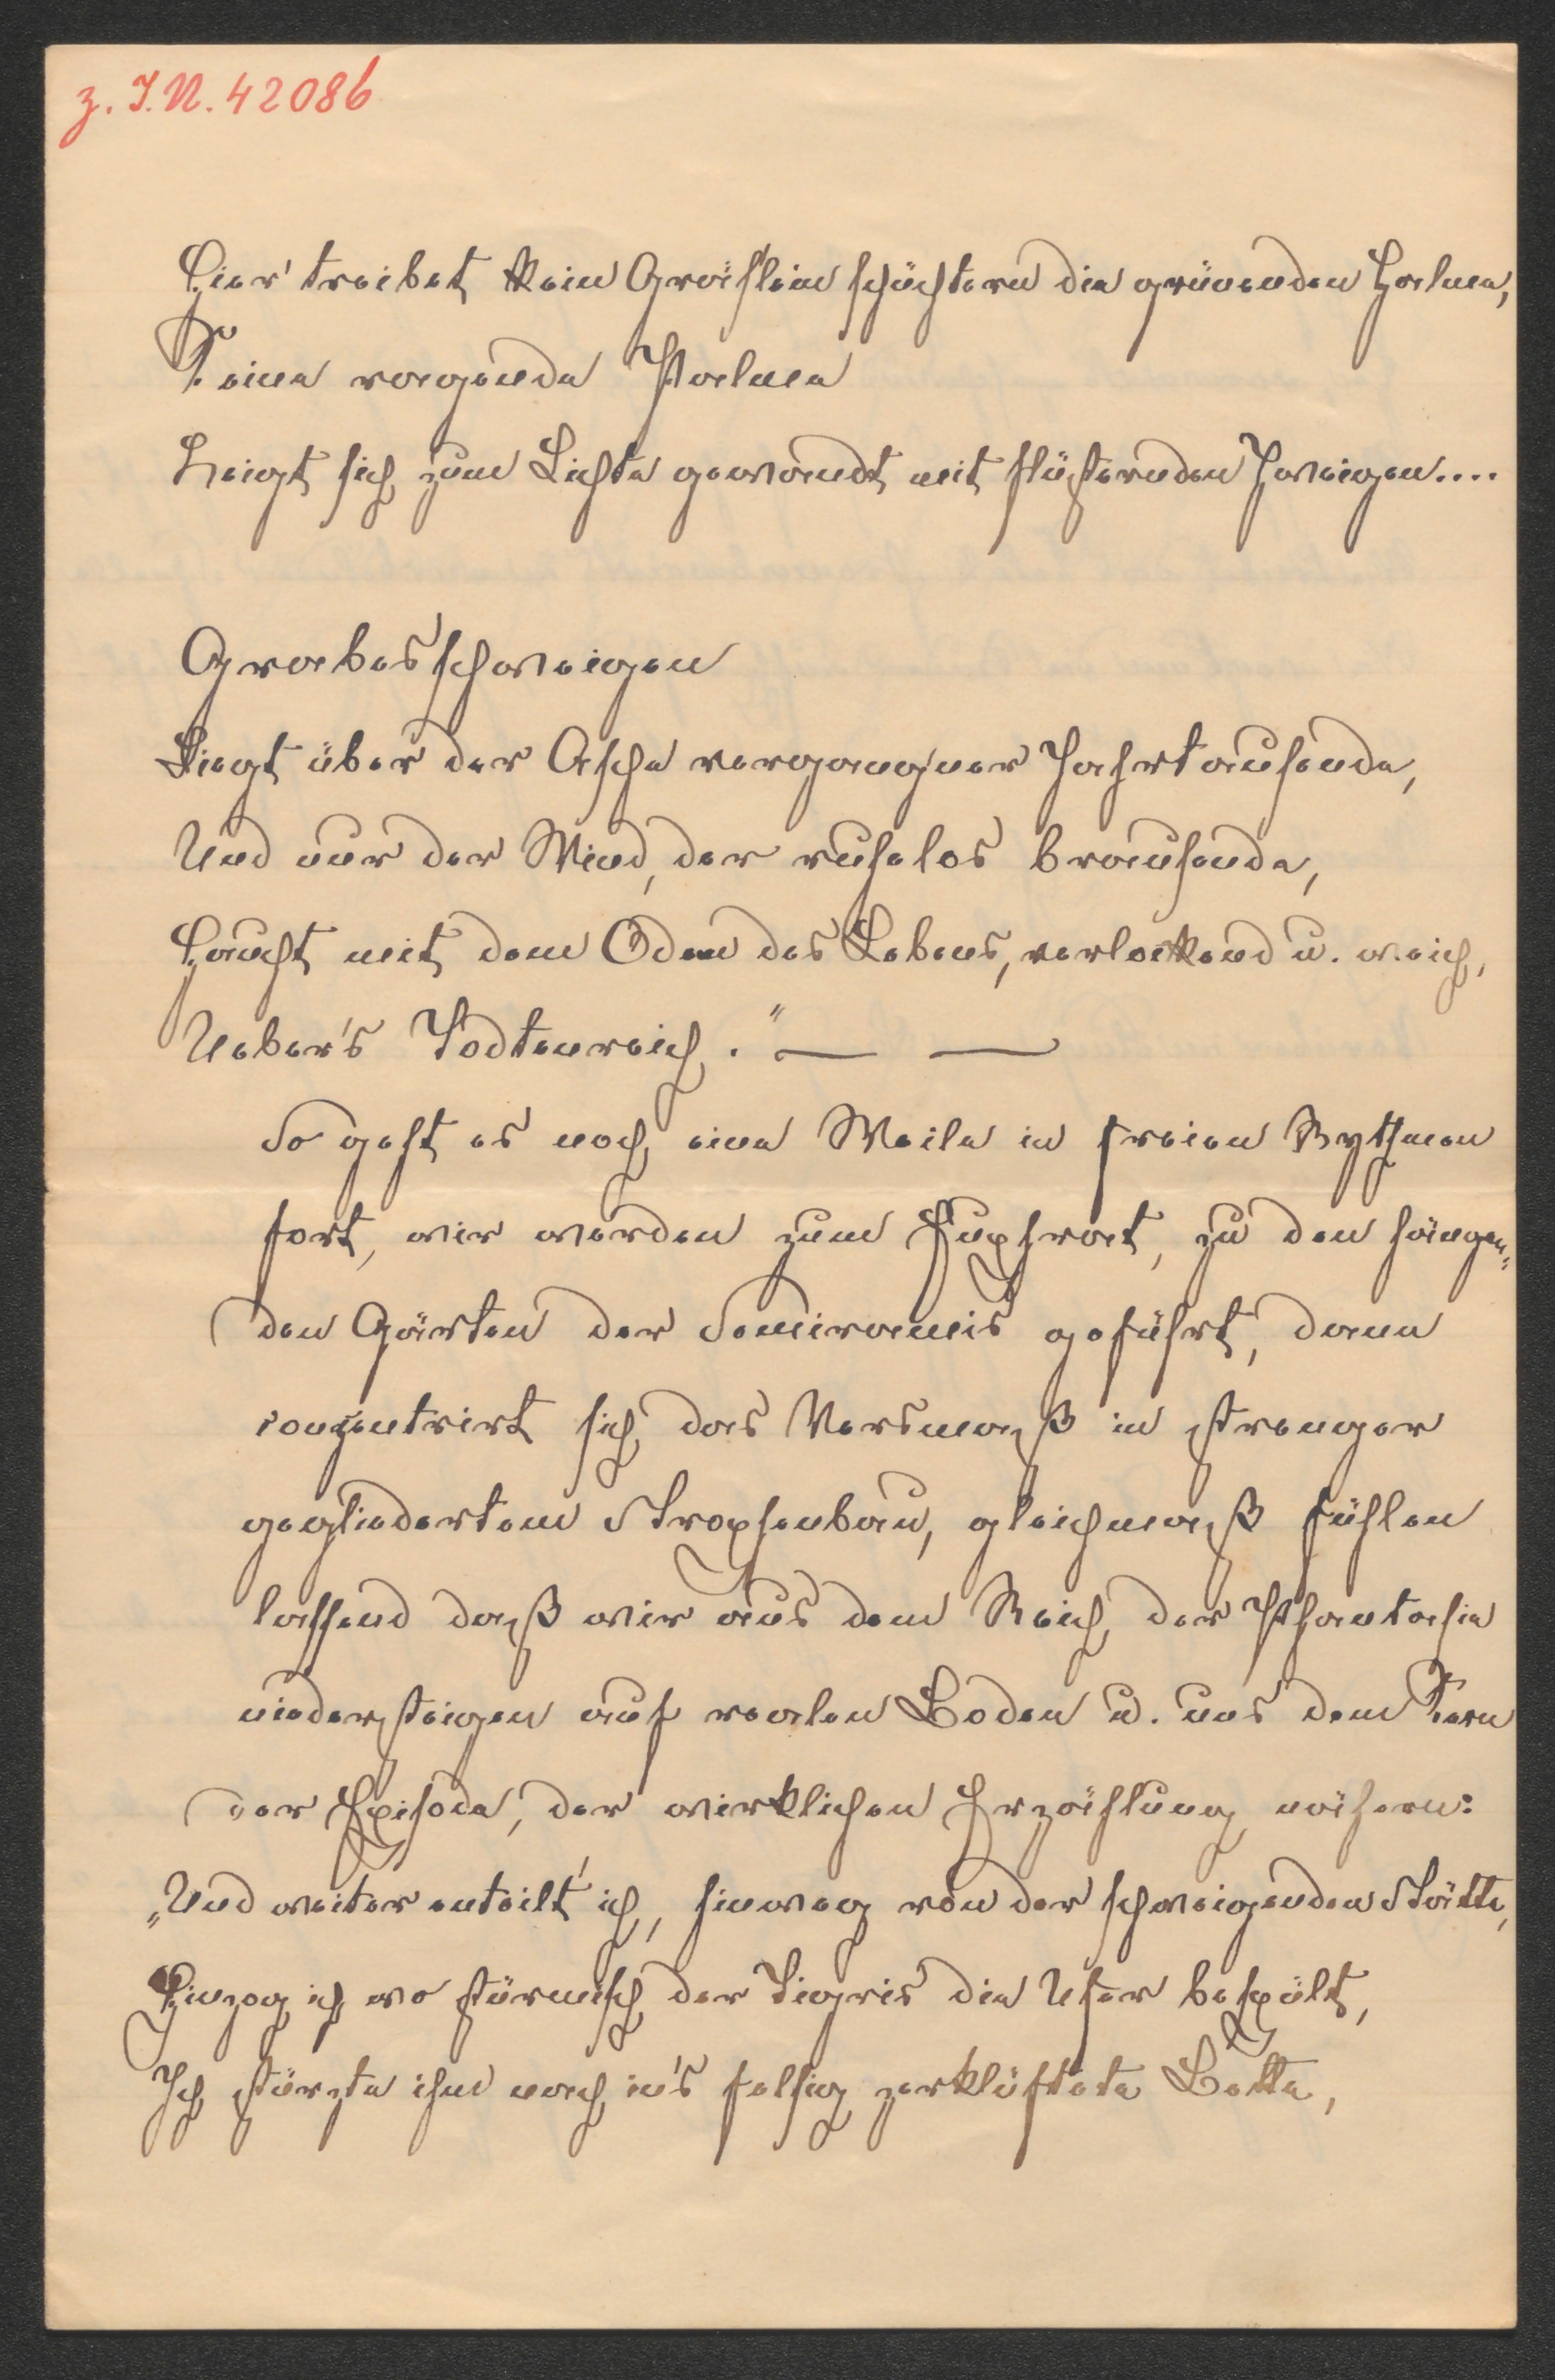 z. I.N. 42086
Hier treibet kein Gräslein schüchtern die grünenden Halme,
Keine ragende Palme
Neigt sich zum Lichte gewandt mit flüsternden Zweigen....
Grabesschweigen
Liegt über der Asche vergangner Jahrtausende,
Und nur der Wind, der ruhelos brausende,
Haucht mit dem Odem des Lebens, verlockend u. weich,
Ueber's Todtenreich." — —
So geht es noch eine Weile in freien Rythmen
fort, wir werden zum Euphrat, zu den hängen-
den Gärten der Semiramis geführt, dann
conzentrirt sich das Versmaß in strenger
gegliedertem Strophenbau, gleichmaß fühlen
lassend daß wir aus dem Reich der Phantasie
niedersteigen auf realen Boden u. uns dem Kern
der Episode, der wirklichen Erzählung nähern:
„Und weiter enteilt' ich, hinweg von der schweigenden Stätte,
Hinzog ich wo stürmisch der Tigris die Ufer bespült,
Ich stürzte ihm nach in's felsig zerklüftete Bette,